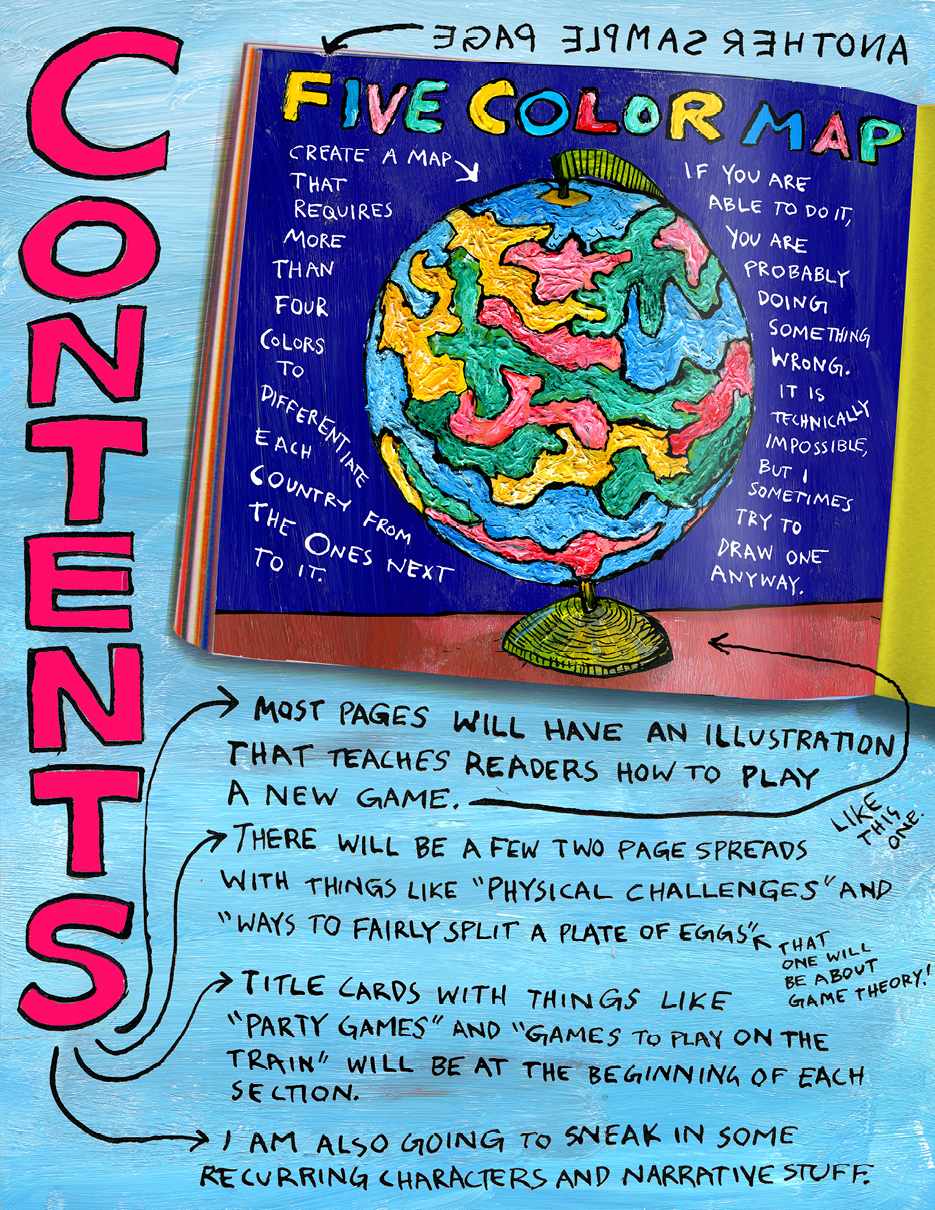 CONTENTS
ANOTHER SAMPLE PAGE
FIVE COLOR MAP
CREATE A MAP
THAT
REQUIRES
MORE
THAN
FOUR
COLORS
TO
DIFFERENTIATE
EACH
COUNTRY FROM
THE ONES NEXT
TO IT.
IF YOU ARE
ABLE TO DO IT,
YOU ARE
PROBABLY
DOING
SOMETHING
WRONG.
IT IS
TECHNICALLY
IMPOSSIBLE,
BUT I
SOMETIMES
TRY TO
DRAW ONE
ANYWAY.
MOST PAGES WILL HAVE AN ILLUSTRATION
THAT TEACHES READERS HOW TO PLAY
A NEW GAME.
LIKE
THIS
ONE.
THERE WILL BE A FEW TWO PAGE SPREADS
WITH THINGS LIKE "PHYSICAL CHALLENGES" AND
"WAYS TO FAIRLY SPLIT A PLATE OF EGGS"
THAT
ONE WILL
BE ABOUT
GAME THEORY!
TITLE CARDS WITH THINGS LIKE
"PARTY GAMES" AND "GAMES TO PLAY ON THE
TRAIN" WILL BE AT THE BEGINNING OF EACH
SECTION.
I AM ALSO GOING TO SNEAK IN SOME
RECURRING CHARACTERS AND NARRATIVE STUFF.